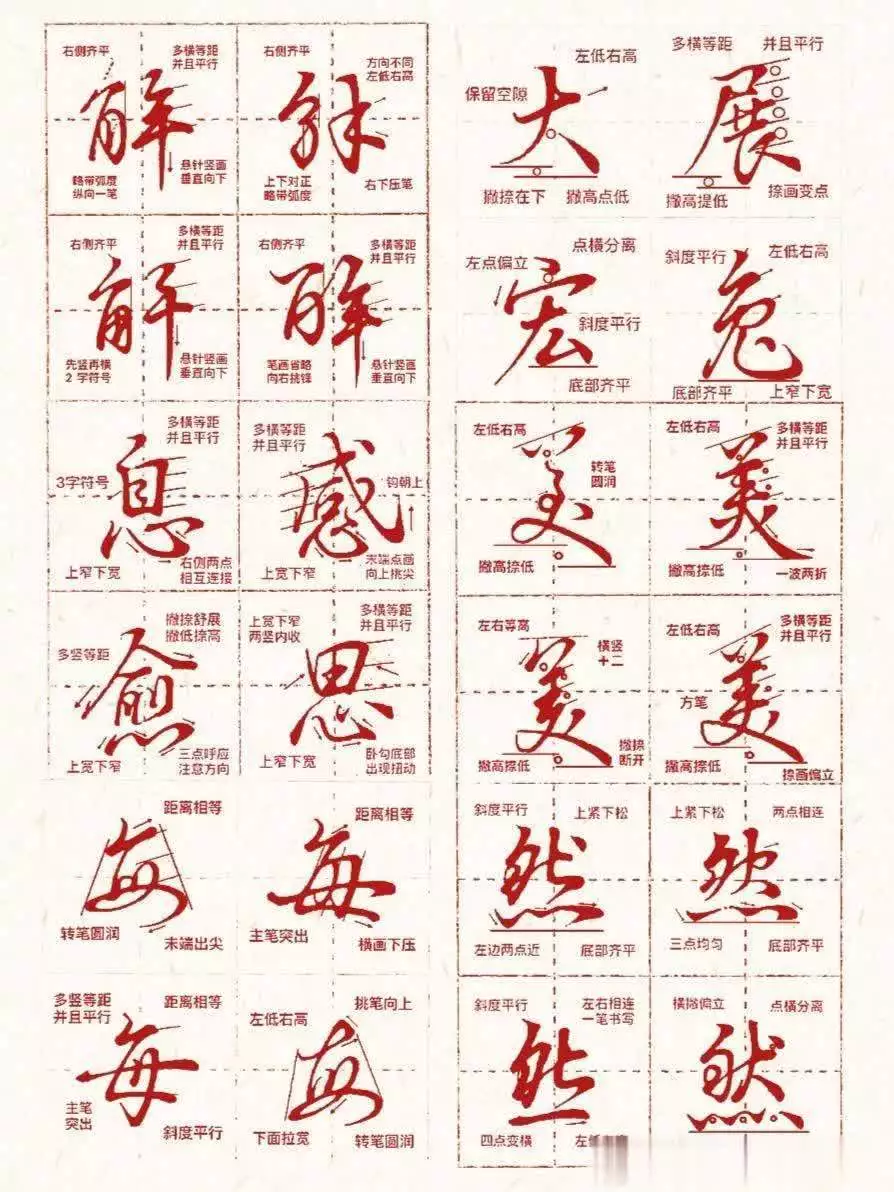 右侧齐平
多横等距
并且平行
解
略带弧度
纵向一笔
悬针竖画
垂直向下
右侧齐平
方向不同
左低右高
解
上下对正
略带弧度
右下压笔
右侧齐平
多横等距
并且平行
解
先竖再横
2字符号
悬针竖画
垂直向下
右侧齐平
多横等距
并且平行
解
笔画省略
向右挑锋
悬针竖画
垂直向下
多横等距
并且平行
3字符号
息
上窄下宽
右侧两点
相互连接
多横等距
并且平行
感
钩朝上
上宽下窄
末端点画
向上挑尖
撇捺舒展
撇低捺高
多竖等距
愈
上宽下窄
三点呼应
注意方向
上宽下窄
两竖内收
多横等距
并且平行
思
上窄下宽
卧勾底部
出现扭动
距离相等
每
转笔圆润
末端出尖
距离相等
每
主笔突出
横画下压
多竖等距
并且平行
距离相等
每
主笔
突出
斜度平行
挑笔向上
左低右高
每
下面拉宽
转笔圆润
左低右高
保留空隙
大
撇捺在下
撇高点低
多横等距
并且平行
展
撇高提低
捺画变点
点横分离
左点偏立
宏
斜度平行
底部齐平
斜度平行
左低右高
兔
底部齐平
上窄下宽
左低右高
美
转笔
圆润
撇高捺低
左低右高
多横等距
并且平行
美
撇高捺低
一波两折
左右等高
横竖
十二
美
撇高捺低
撇捺
断开
左低右高
多横等距
并且平行
方笔
美
撇高捺低
捺画偏立
斜度平行
上紧下松
然
左边两点近
底部齐平
上紧下松
两点相连
然
三点均匀
底部齐平
斜度平行
左右相连
一笔书写
然
四点变横
左低
横撇偏立
点横分离
然